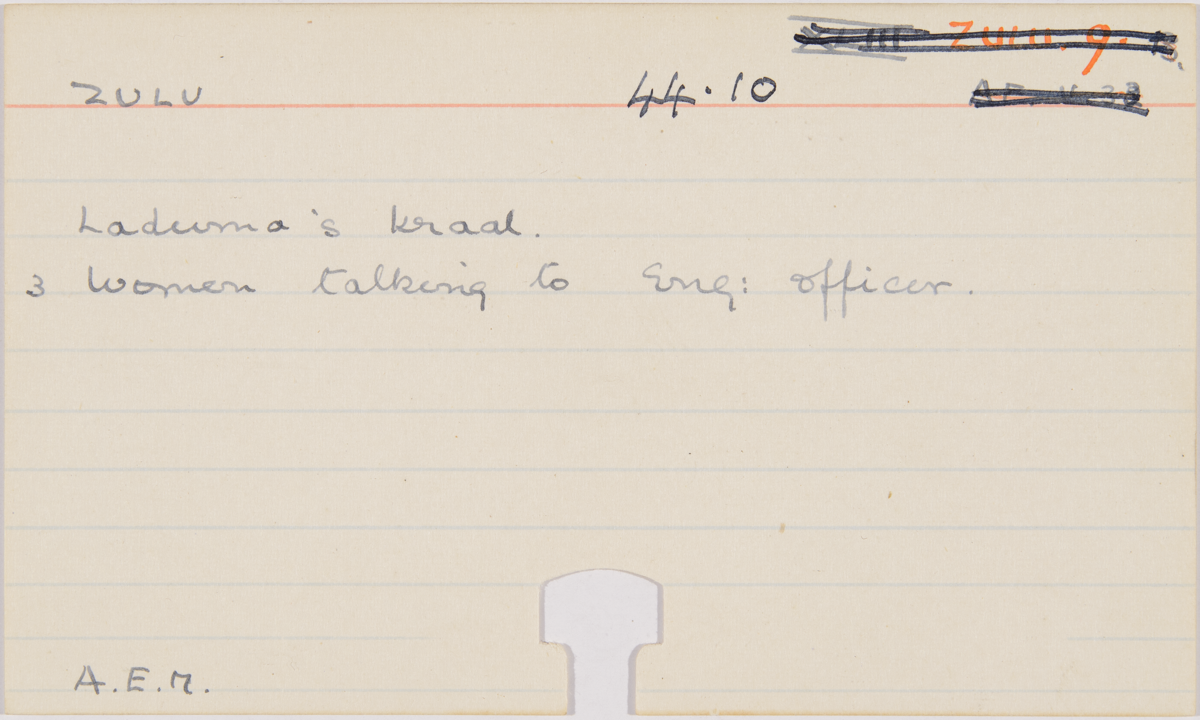 Zulu. 9.
ZULU 44.10
Laduma's kraal.
3 Women talking to Eng: officer.
A.E.M.